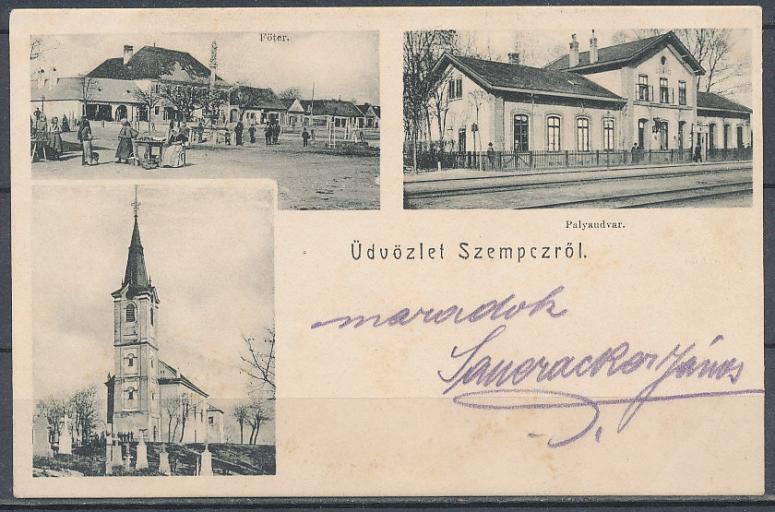 Főter.
Palyaudvar.
Üdvözlet Szempczről.
maradok
János